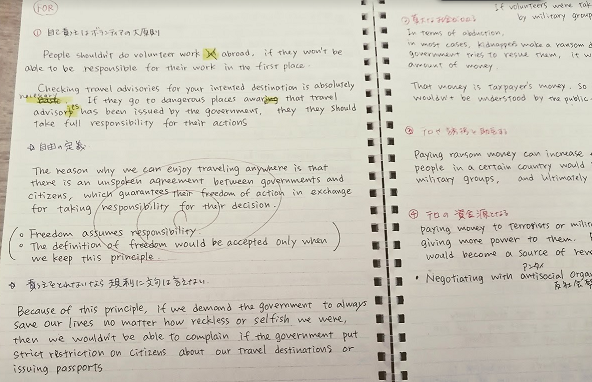 FOR
① 自己責任はボランティアの大原則
People shouldn't do volunteer work abroad, if they won't be
able to be responsible for their work in the first place.
Checking travel advisories for your intended destination is absolutely
necessary
basic. If they go to dangerous places awaring that travel
advisories has been issued by the government, they they should
take full responsibility for their actions
→ 自由の定義
The reason why we can enjoy traveling anywhere is that
there is an unspoken agreement between governments and
citizens, which guarantees their freedom of action in exchange
for taking responsibility for their decision.
• Freedom assumes responsibility.
• The definition of freedom would be accepted only when
we keep this principle.
→ 責任をとれないなら規制に文句は言えない
Because of this principle, if we demand the government to always
save our lives no matter how reckless or selfish we were,
then we wouldn't be able to complain if the government put
strict restriction on citizens about our travel destinations or
issuing passports
If volunteers were tak
by military group
②
In terms of abduction,
in most cases, kidnappers make a ransom d
government tries to resue them, it w
amount of money.
That money is taxpayer's money. So
wouldn't be understood by the public
③ テロ
Paying ransom money can increase
people in a certain country would
military groups, and ultimately
④ テロの資金源となる
paying money to terrorists or milit
giving more power to them.
would become a source of reve
アンタイ
• Negotiating with antisocial organ
反社会